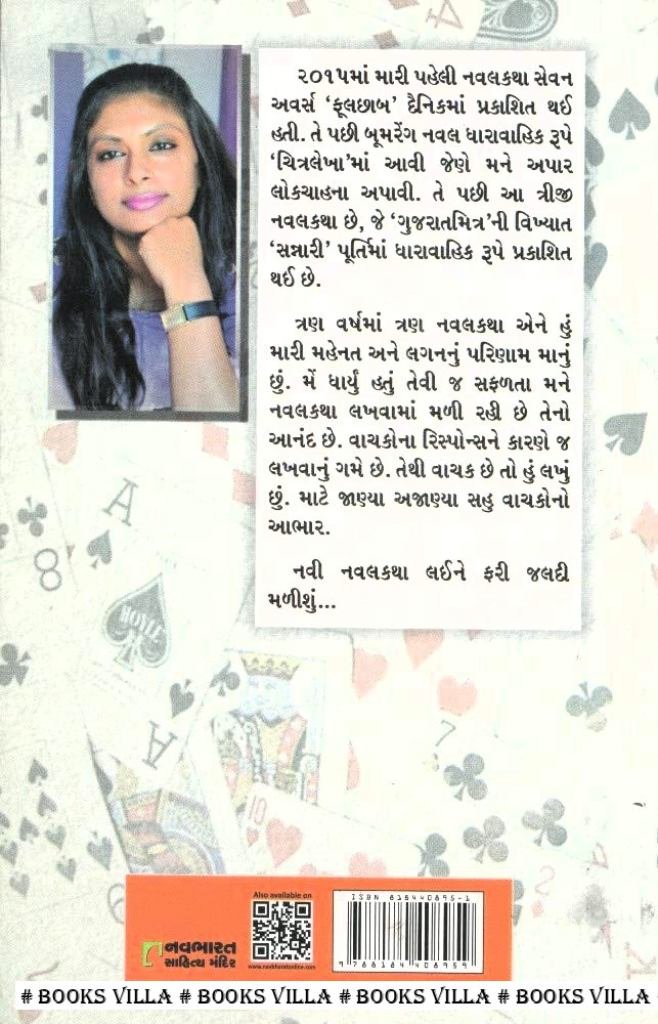 ૨૦૧૫માં મારી પહેલી નવલકથા સેવન
અવર્સ ‘ફૂલછાબ’ દૈનિકમાં પ્રકાશિત થઈ
હતી. તે પછી બૂમરેંગ નવલ ધારાવાહિક રૂપે
‘ચિત્રલેખા’માં આવી જેણે મને અપાર
લોકચાહના અપાવી. તે પછી આ ત્રીજી
નવલકથા છે, જે ‘ગુજરાતમિત્ર’ની વિખ્યાત
‘સન્નારી’ પૂર્તિમાં ધારાવાહિક રૂપે પ્રકાશિત
થઈ છે.
ત્રણ વર્ષમાં ત્રણ નવલકથા એને હું
મારી મહેનત અને લગનનું પરિણામ માનું
છું. મેં ધાર્યું હતું તેવી જ સફળતા મને
નવલકથા લખવામાં મળી રહી છે તેનો
આનંદ છે. વાચકોના રિસ્પોન્સને કારણે જ
લખવાનું ગમે છે. તેથી વાચક છે તો હું લખું
છું. માટે જાણ્યા અજાણ્યા સહુ વાચકોનો
આભાર.
નવી નવલકથા લઈને ફરી જલદી
મળીશું...
A
8
HOYLE
A
7
10
નવભારત
સાહિત્ય મંદિર
Also available on
www.navbharatonline.com
ISBN 818440895-1
9 788184 408959
# BOOKS VILLA # BOOKS VILLA # BOOKS VILLA # BOOKS VILLA